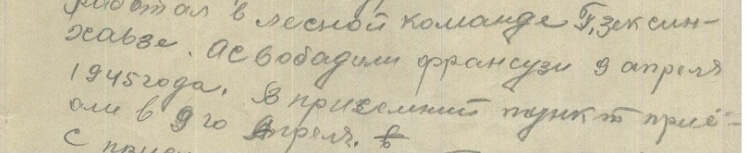 работал в лесной команде Г, зексин-
хавзе. Асвобадили французи 9 апреля
1945 года. В приземний пункт приё-
али в 9го Апреля. в
с